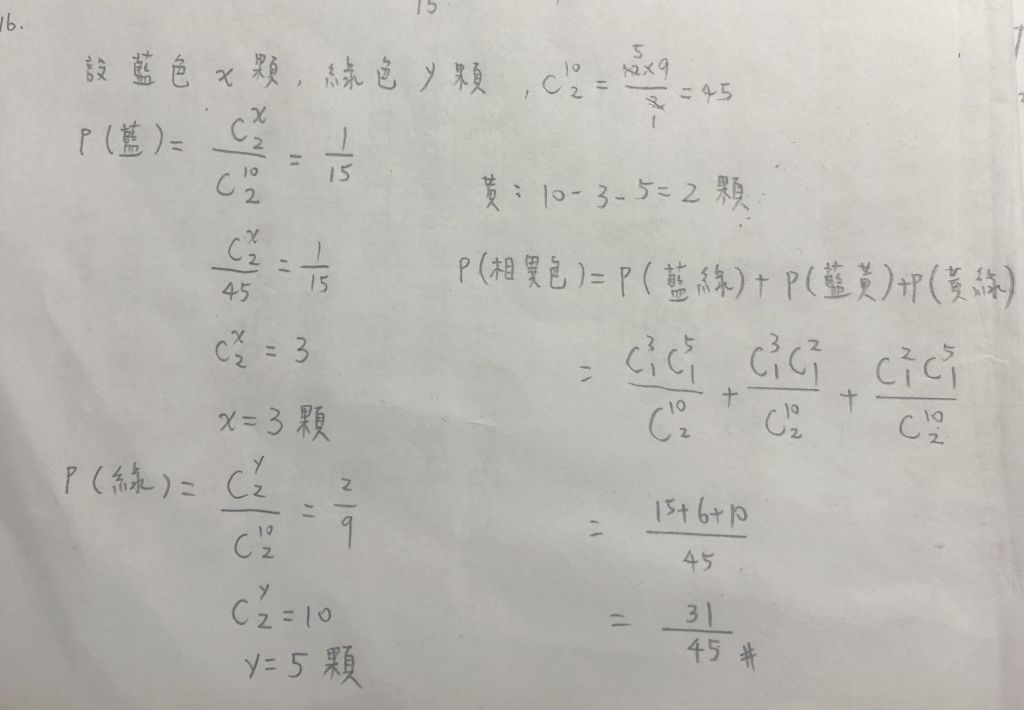 15
16.
設藍色 x 顆, 綠色 y 顆, C₂¹⁰ = (10×9)/2 = 45
P(藍) = C₂ˣ/C₂¹⁰ = 1/15
C₂ˣ/45 = 1/15
C₂ˣ = 3
x = 3 顆
P(綠) = C₂ʸ/C₂¹⁰ = 2/9
C₂ʸ = 10
y = 5 顆
黃: 10-3-5 = 2 顆
P(相異色) = P(藍綠) + P(藍黃) + P(黃綠)
= C₁³C₁⁵/C₂¹⁰ + C₁³C₁²/C₂¹⁰ + C₁²C₁⁵/C₂¹⁰
= (15+6+10)/45
= 31/45 #